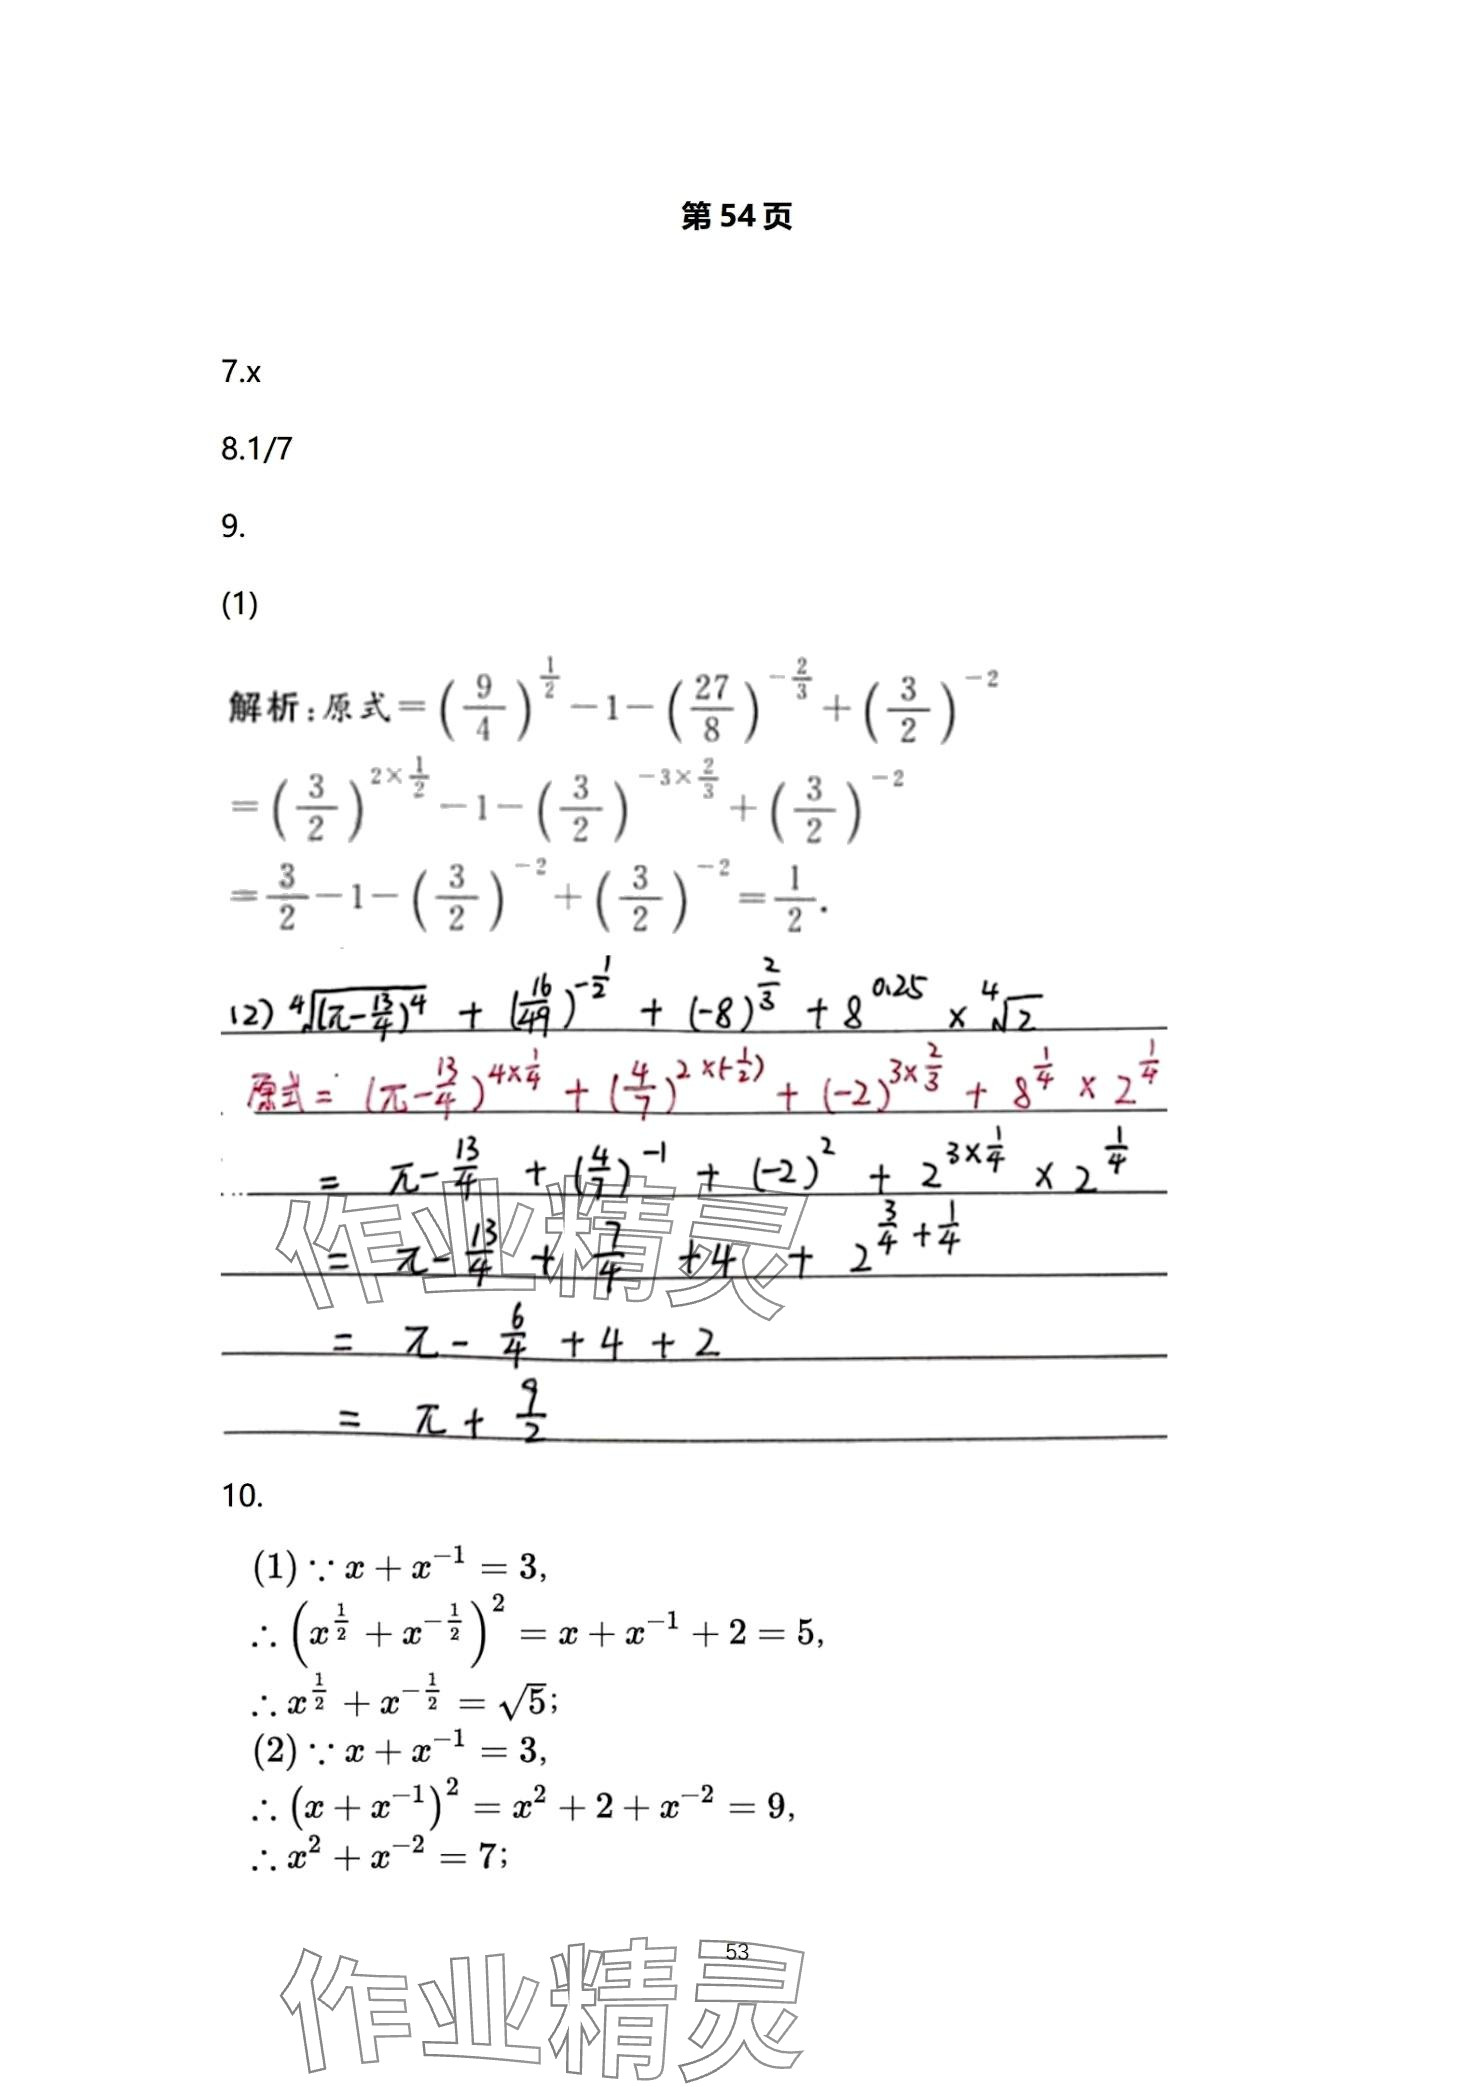 第 54 页
7.x
8.1/7
9.
(1)
解析:原式=(9/4)^{1/2}-1-(27/8)^{-2/3}+(3/2)^{-2}
=(3/2)^{2×1/2}-1-(3/2)^{-3×2/3}+(3/2)^{-2}
=3/2-1-(3/2)^{-2}+(3/2)^{-2}=1/2.
(2) ⁴√((π-13/4)^4) + (16/49)^{-1/2} + (-8)^{2/3} + 8^{0.25} × ⁴√2
原式= (π-13/4)^{4×1/4} + (4/7)^{2×(-1/2)} + (-2)^{3×2/3} + 8^{1/4} × 2^{1/4}
= π-13/4 + (4/7)^{-1} + (-2)^2 + 2^{3×1/4} × 2^{1/4}
= π-13/4 + 7/4 +4 + 2^{3/4+1/4}
= π - 6/4 + 4 + 2
= π + 9/2
10.
(1)∵x+x^{-1}=3,
∴(x^{1/2}+x^{-1/2})^2=x+x^{-1}+2=5,
∴x^{1/2}+x^{-1/2}=√5;
(2)∵x+x^{-1}=3,
∴(x+x^{-1})^2=x^2+2+x^{-2}=9,
∴x^2+x^{-2}=7;
53
作业精灵
作业精灵